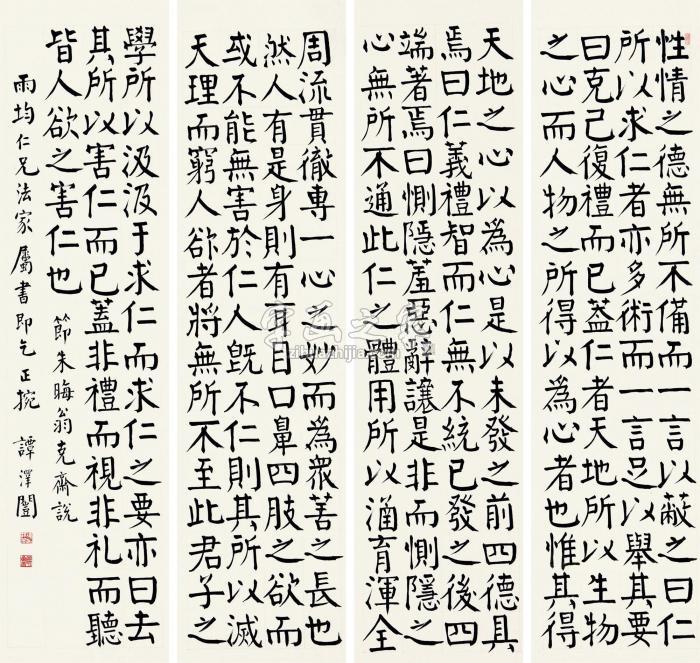 性情之德無所不備而一言以蔽之曰仁
所以求仁者亦多術而一言足以舉其要
曰克己復禮而已盖仁者天地所以生物
之心而人物之所得以為心者也惟其得
天地之心以為心是以未發之前四德具
焉曰仁義禮智而仁無不統已發之後四
端著焉曰惻隱羞惡辭讓是非而惻隱之
心無所不通此仁之體用所以涵育渾全
周流貫徹專一心之妙而為衆善之長也
然人有是身則有耳目口鼻四肢之欲而
或不能無害於仁人既不仁則其所以滅
天理而窮人欲者將無所不至此君子之
學所以汲汲于求仁而求仁之要亦曰去
其所以害仁而已蓋非禮而視非礼而聽
皆人欲之害仁也 節朱晦翁克齋說
雨均仁兄法家屬書即乞正捥 譚澤闓
字画之家
zihuazhijia.com